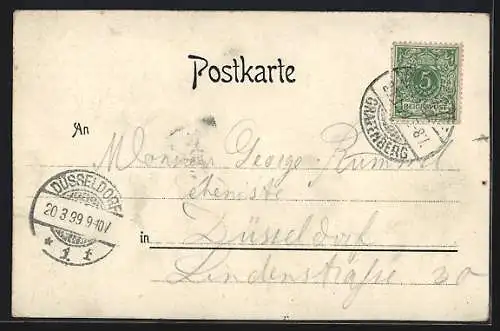 Postkarte
5
REICHSPOST
GRAFENBERG
8-9 V.
An
Monsieur George Rummel
DÜSSELDORF
20 3 99 9-10 V
* 1 f
in Düsseldorf
Lindenstraße 30